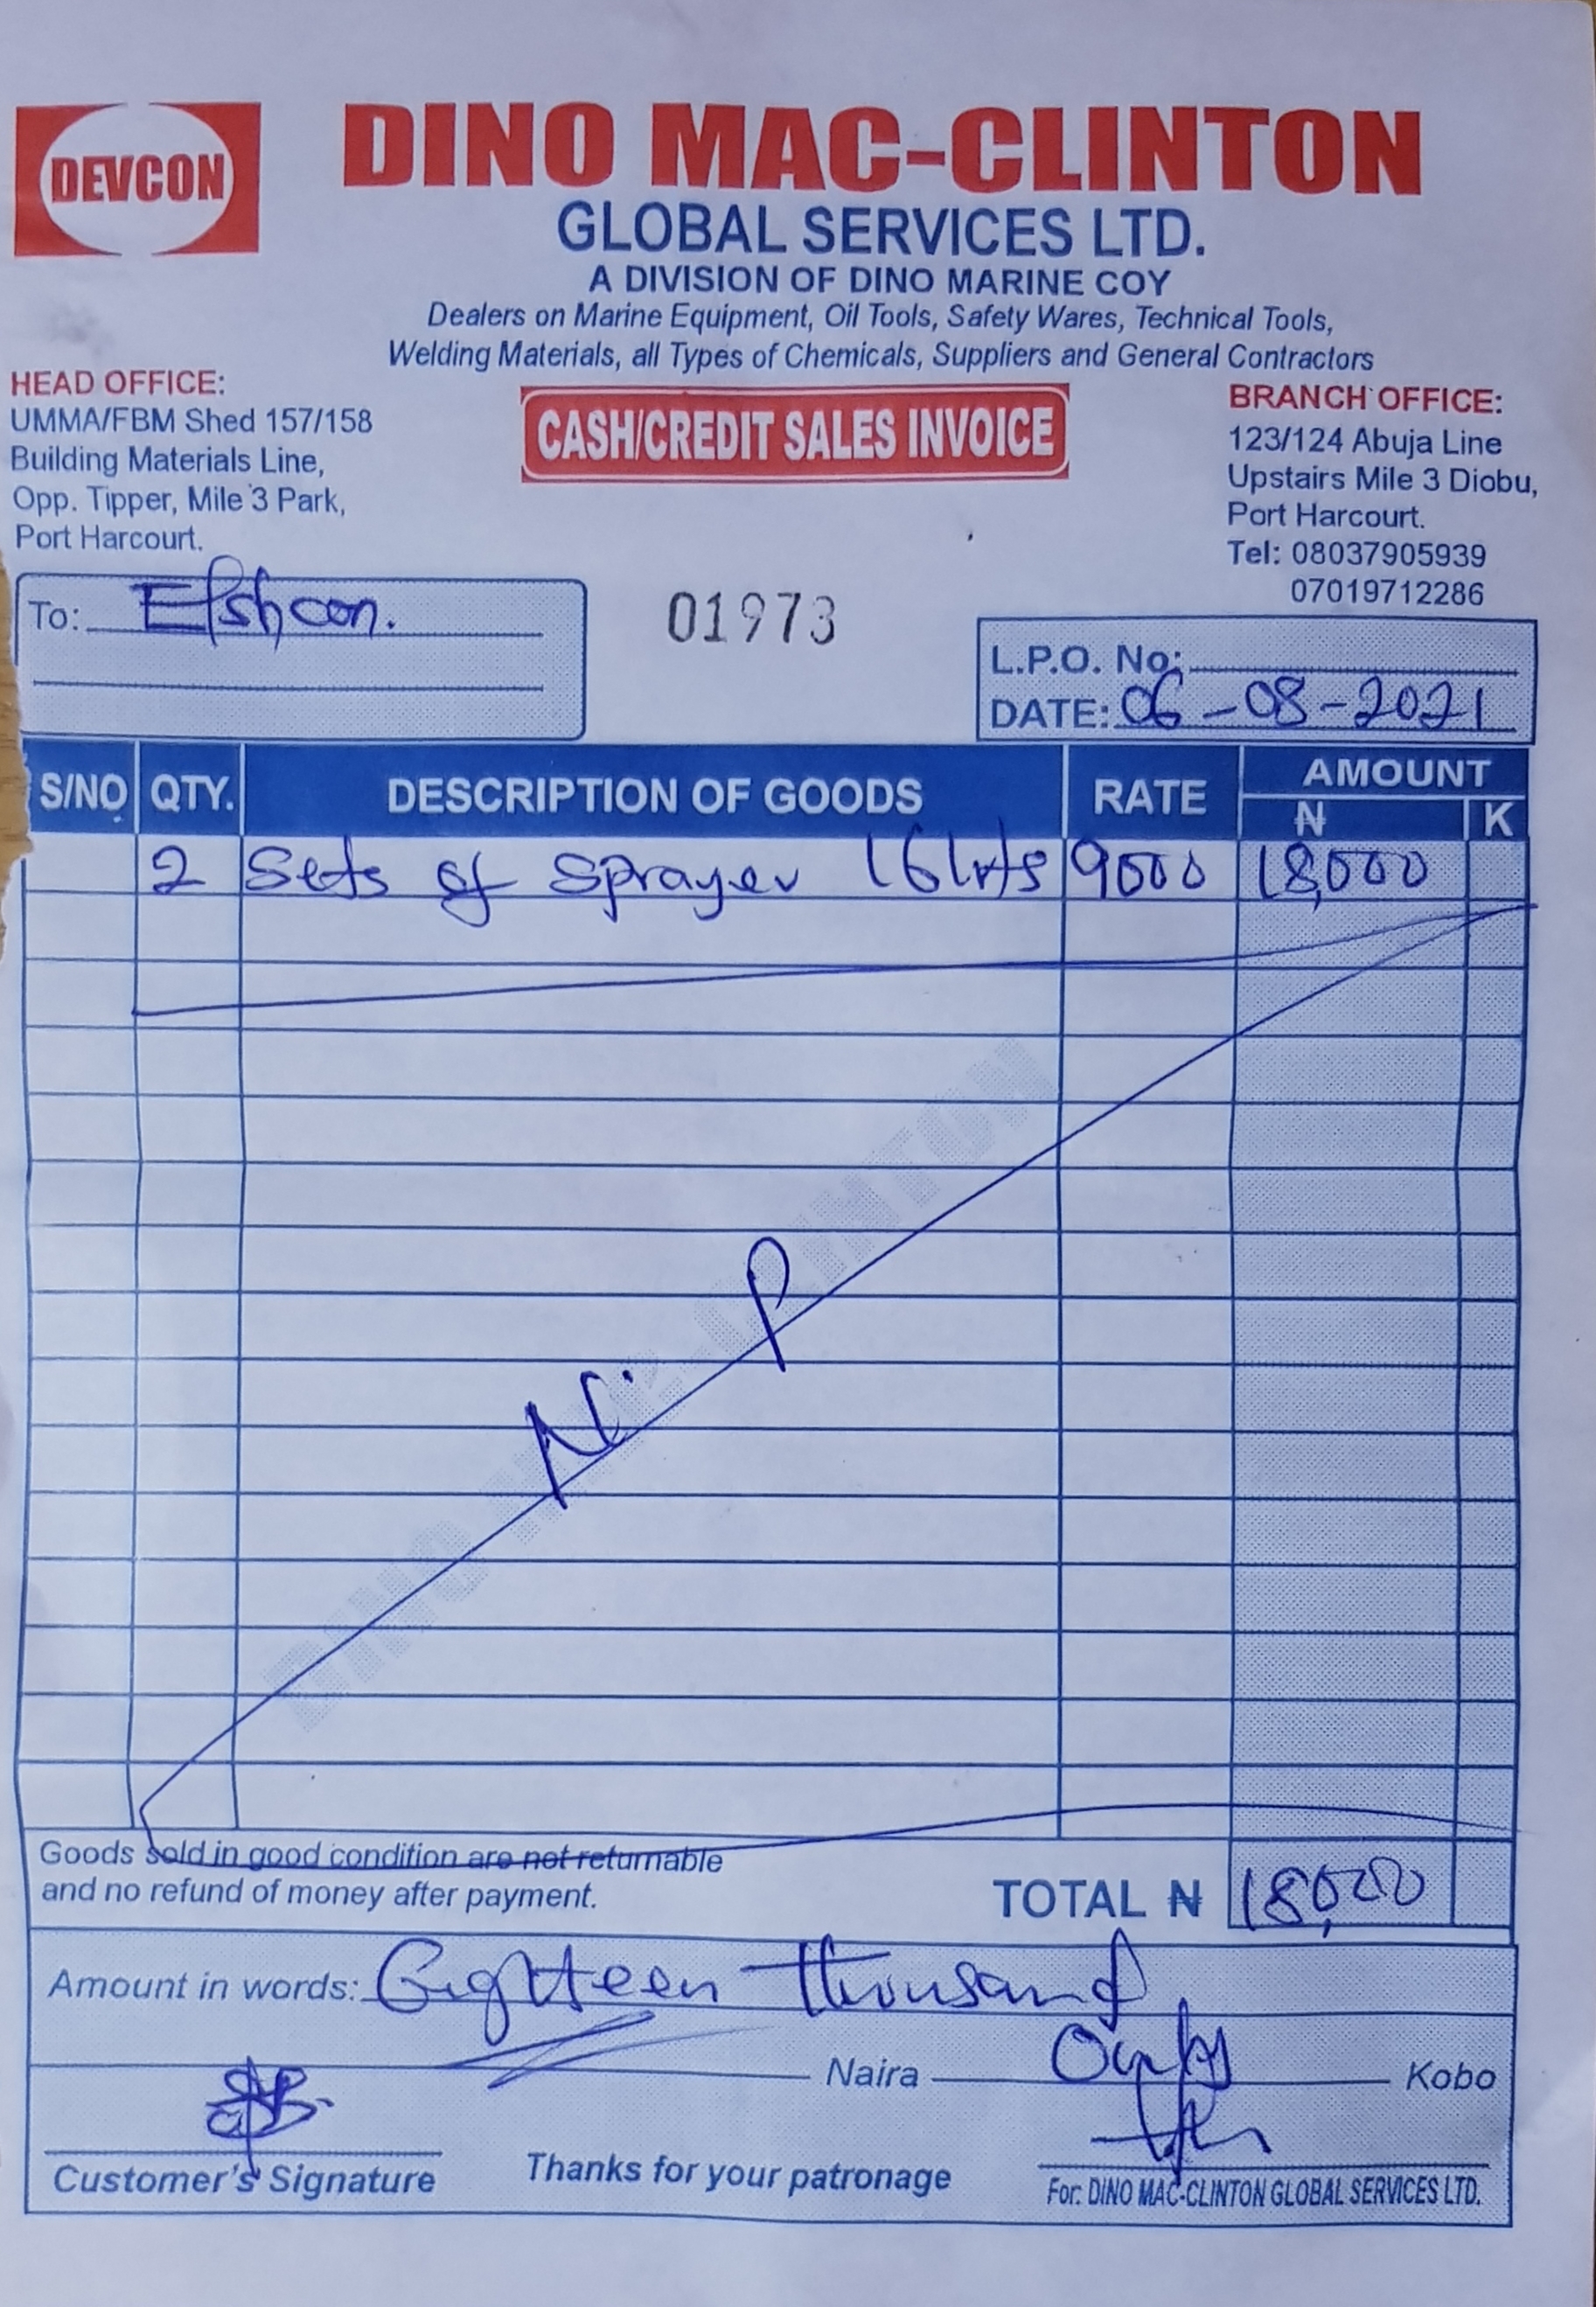 DEVCON
DINO MAC-CLINTON
GLOBAL SERVICES LTD.
A DIVISION OF DINO MARINE COY
Dealers on Marine Equipment, Oil Tools, Safety Wares, Technical Tools,
Welding Materials, all Types of Chemicals, Suppliers and General Contractors
HEAD OFFICE:
UMMA/FBM Shed 157/158
Building Materials Line,
Opp. Tipper, Mile 3 Park,
Port Harcourt.
CASH/CREDIT SALES INVOICE
BRANCH OFFICE:
123/124 Abuja Line
Upstairs Mile 3 Diobu,
Port Harcourt.
Tel: 08037905939
07019712286
To: Elshcon.
01973
L.P.O. No:
DATE: 06-08-2021
S/NO QTY. DESCRIPTION OF GOODS RATE AMOUNT
₦ K
2 Sets of Sprayer 16lrts 9000 18,000
DINO MAC-CLINTON
Goods sold in good condition are not returnable
and no refund of money after payment.
TOTAL ₦ 18,000
Amount in words: Eighteen thousand
Naira Only Kobo
Customer's Signature
Thanks for your patronage
For: DINO MAC-CLINTON GLOBAL SERVICES LTD.